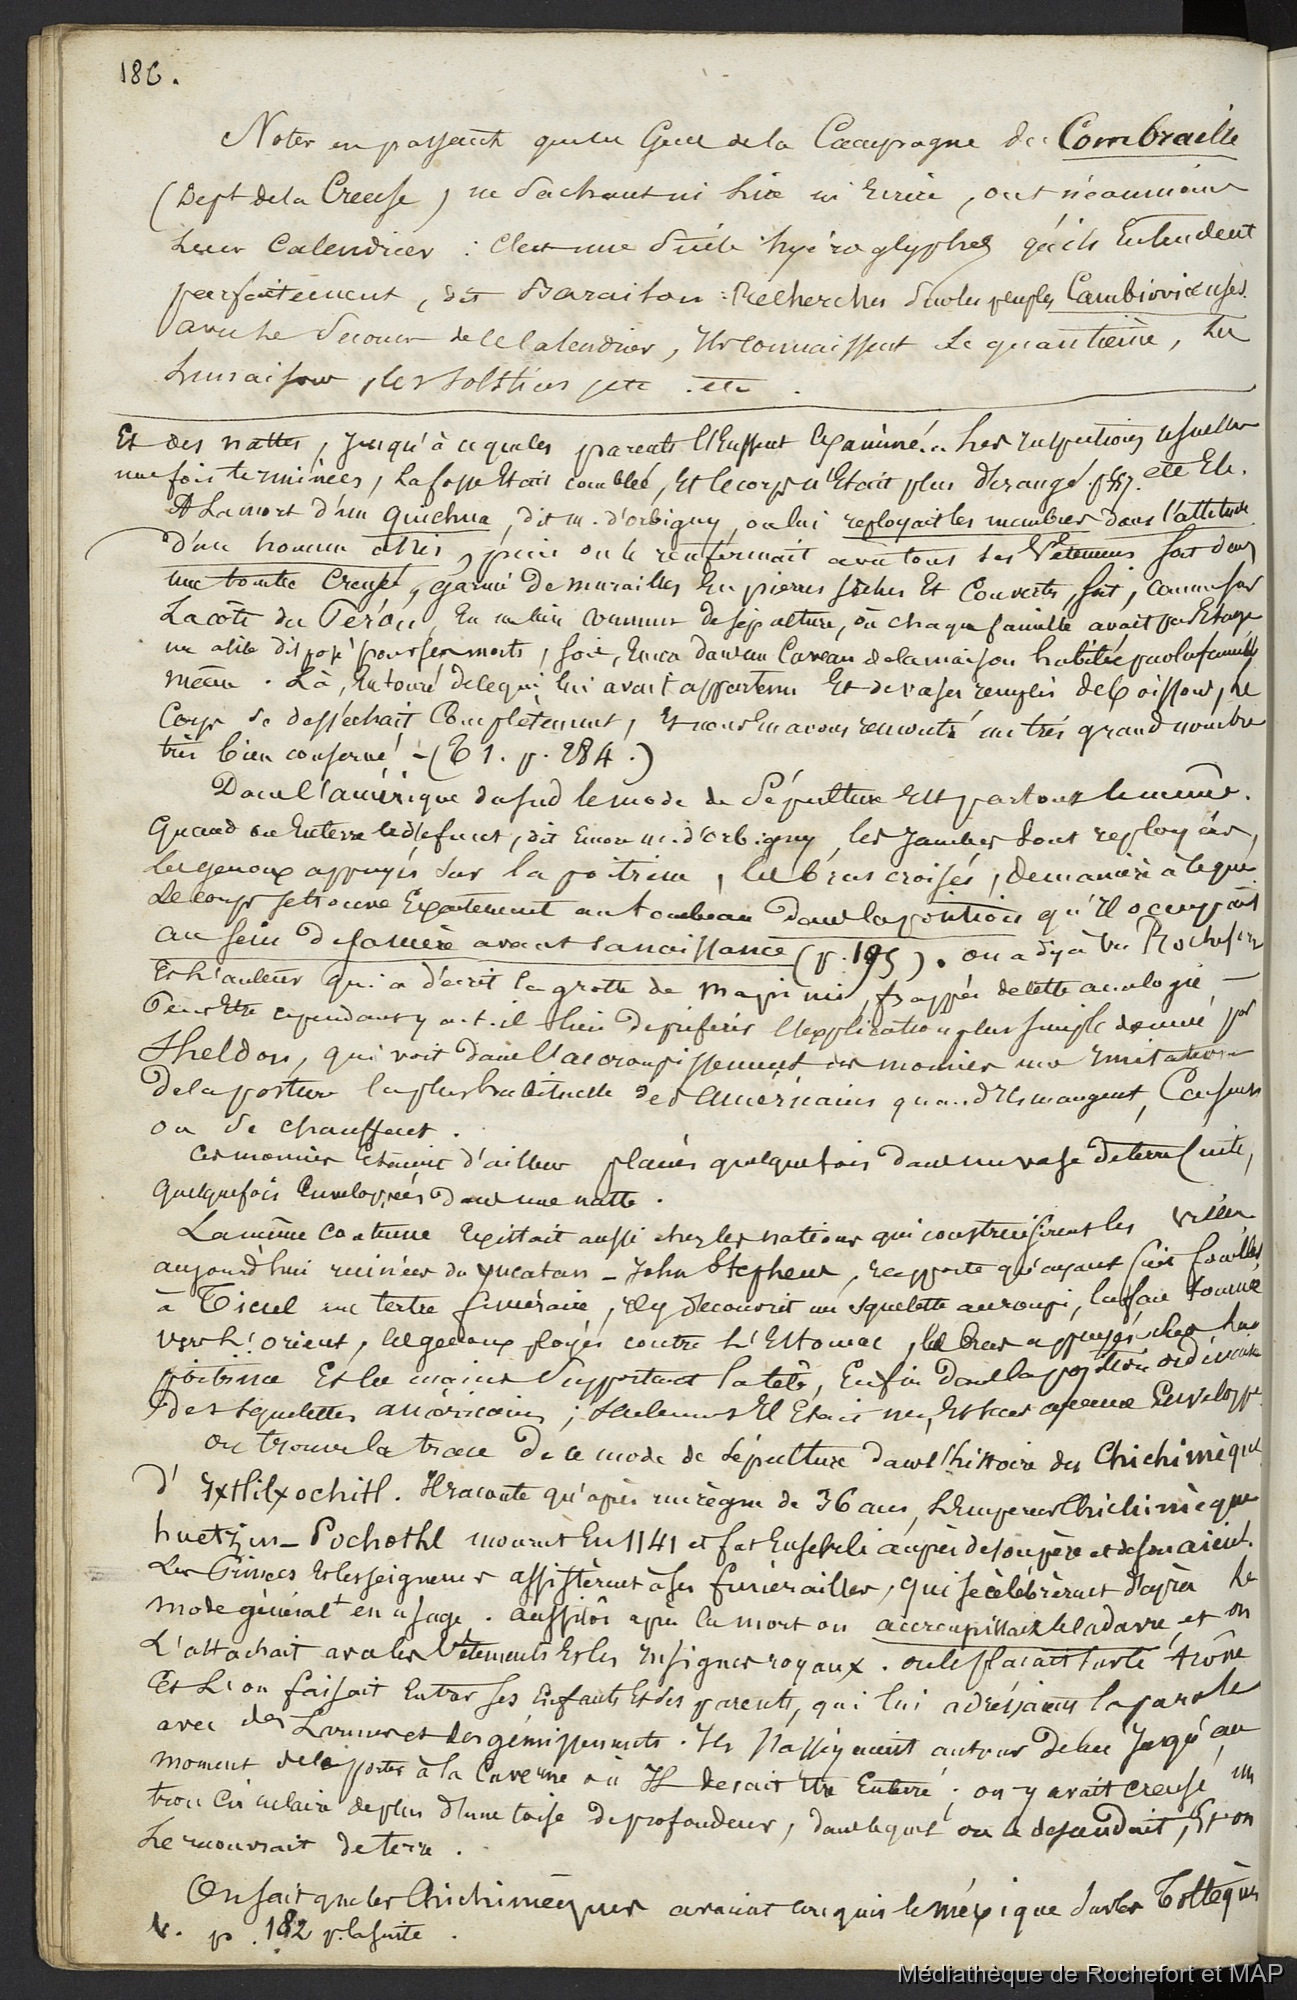 186.
Noter en passant que les Gens de la Campagne de Combraille
(Dept de la Creuse) ne sachant ni lire ni Ecrire, ont néanmoins
leur Calendrier : C'est une suite hyéroglyphes qu'ils Entendent
parfaitement, dit Baraillon : Recherches sur les peuples Cambiovicenses.
avec le secours de ce Calendrier, Ils connaissent le quantième, les
lunaisons, les solstices, etc. etc.
Et des nattes, jusqu'à ce que les parents l'Eussent Examiné. Les inspections usuelles
une fois terminées, la fosse Etait comblée, Et le corps n'Etait plus dérangé. etc Etc.
A La mort d'un quichua, dit m. d'orbigny, on lui reployait les membres dans l'attitude
d'un homme assis, puis on le renfermait avec tous ses Vêtemens soit dans
une tombe Creusée, garnie de murailles En pierres sèches Et Couverte, soit, comme sur
La côte du Pérou, En un lieu commun de sépulture, où chaque famille avait par Etage
un asile disposé pour ses morts, soit, Enfin dans un Caveau de la maison habitée par la famille
même. Là, Entouré de ce qui lui avait appartenu Et de vases remplis de boissons, le
Corps se desséchait Complètement, Et nous En avons rencontré un très grand nombre
très bien conservé - (T 1. p. 284.)
Dans l'amérique du sud le mode de sépulture Est partout le même.
Quand on Enterre le défunt, dit Encore m. d'orbigny, les jambes sont reployées,
les genoux appuyés sur la poitrine, les bras croisés, de manière à ce que
Le corps se trouve Exactement au tombeau dans la position qu'il occupait
au sein de sa mère avant sa naissance (p. 195). on a déjà vu Rochefort
Et l'auteur qui a décrit la grotte de mapimi, frappés de cette analogie -
Peut Etre cependant y a-t-il lieu de préférer l'explication plus simple donnée par
Sheldon, qui voit dans l'accroupissement des momies une Imitation
de la posture la plus habituelle des américains quand Ils mangent, Causent
ou se chauffent.
Ces momies Etaient d'ailleurs placées quelquefois dans un vase de terre Cuite,
quelquefois Enveloppées dans une natte.
La même coutume Existait aussi chez les nations qui construisirent les villes
aujourd'hui ruinées du yucatan - John Stephens, rapporte qu'ayant fait fouiller
à Ticul un tertre funéraire, il y découvrit un squelette accroupi, la face tournée
vers l'orient, les genoux ployés contre l'Estomac, les bras appuyés sur la
poitrine Et les mains supportant la tête, Enfin dans la position ordinaire
des squelettes américains ; seulement Il Etait nu, Et sans aucune Enveloppe.
on trouve la trace de ce mode de sépulture dans l'histoire des Chichimèques
d'Ixtlilxochitl. Il raconte qu'après un règne de 36 ans, L'Empereur Chichimèque
huetzin-Pochothl mourut En 1141 et fut Enseveli auprès de son père et de son aïeul.
Les Princes Et les seigneurs assistèrent à ses funérailles, qui se célébrèrent d'après le
mode généralt en usage. aussitôt après la mort on accroupissait le cadavre, et on
L'attachait avec les Vêtements Et les Insignes royaux. on le plaçait sur le trône
Et l'on faisait Entrer ses Enfants Et ses parents, qui lui adressaient la parole
avec des Larmes et des gémissements. Ils s'asseyaient autour de lui jusqu'au
moment de le porter à la Caverne où Il devait Etre Enterré ; on y avait creusé un
trou Circulaire de plus d'une toise de profondeur, dans lequel on le descendait, Et on
Le recouvrait de terre.
On sait que les Chichimèques avaient conquis le méxique sur les Toltèques
v. p. 182 p. la suite.
Médiathèque de Rochefort et MAP